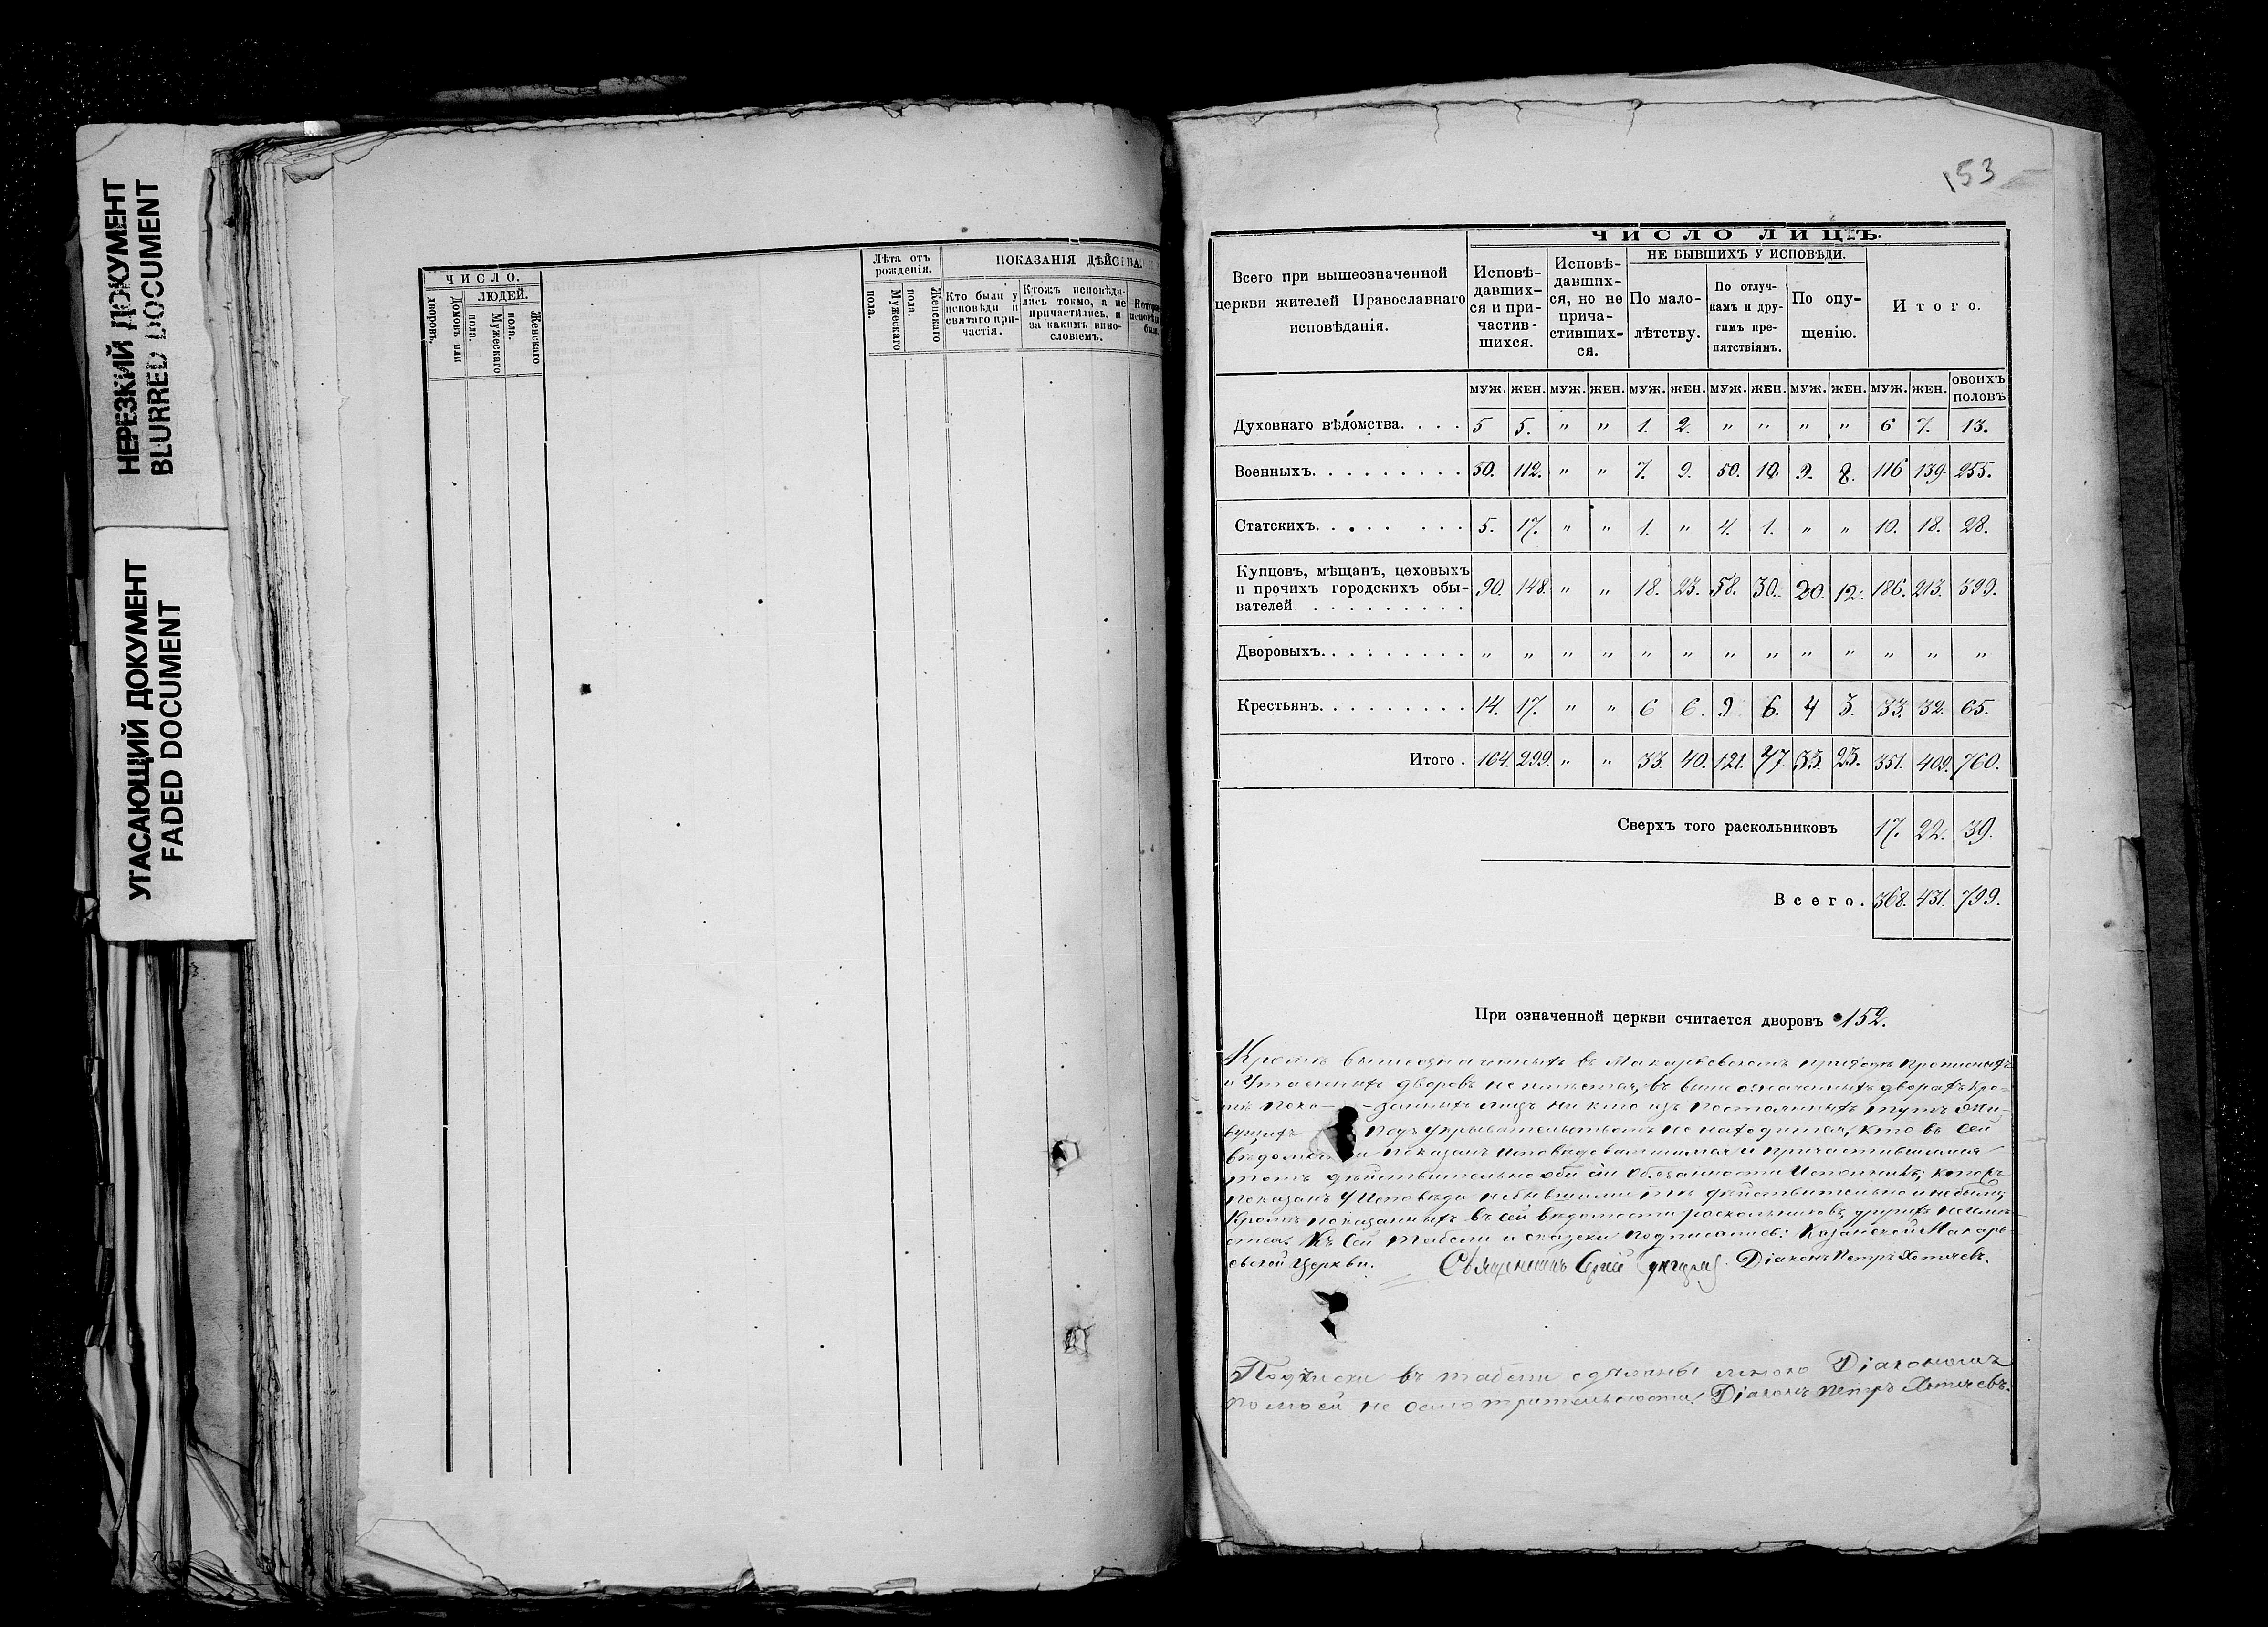 НЕРЕЗКИЙ ДОКУМЕНТ
BLURRED DOCUMENT
УГАСАЮЩИЙ ДОКУМЕНТ
FADED DOCUMENT
ЧИСЛО.
Домовъ или дворовъ.
ЛЮДЕЙ.
Мужескаго пола.
Женскаго пола.
Лѣта отъ рожденія.
Мужескаго пола.
Женскаго пола.
ПОКАЗАНІЯ ДѢЙСТВА
Кто были у исповѣди и святаго причастія.
Ктожъ исповѣдались токмо, а не причастились, и за какимъ винословіемъ.
153
ЧИСЛО ЛИЦЪ.
Всего при вышеозначенной
церкви жителей Православнаго
исповѣданія.
Исповѣ-
давших-
ся и при-
частив-
шихся.
Исповѣ-
давших-
ся, но не
прича-
стивших-
ся.
НЕ БЫВШИХЪ У ИСПОВѢДИ.
По мало-
лѣтству.
По отлуч-
камъ и дру-
гимъ пре-
пятствіямъ.
По опу-
щенію.
Итого.
МУЖ. ЖЕН. МУЖ. ЖЕН. МУЖ. ЖЕН. МУЖ. ЖЕН. МУЖ. ЖЕН. МУЖ. ЖЕН. ОБОИХЪ ПОЛОВЪ
Духовнаго вѣдомства. . . . 5 5. " " 1. 2. " " " " 6 7. 13.
Военныхъ. . . . . . . . . 50. 112. " " 7. 9. 50. 10. 9. 8. 116 139. 255.
Статскихъ. . . . . . . . 5. 17. " " 1. " 4. 1. " " 10. 18. 28.
Купцовъ, мѣщанъ, цеховыхъ
и прочихъ городскихъ обы-
вателей . . . . . . . . . 90. 148. " " 18. 23. 58. 30. 20. 12. 186. 213. 399.
Дворовыхъ. . . . . . . . . " " " " " " " " " " " " "
Крестьянъ. . . . . . . . . 14. 17. " " 6 6. 9. 6. 4 3. 33. 32. 65.
Итого . 164. 299. " " 33. 40. 121. 47. 33. 23. 351. 409. 760.
Сверхъ того раскольниковъ 17. 22. 39.
Всего. 368. 431. 799.
При означенной церкви считается дворовъ 152.
Кромѣ вышеозначенныхъ въ Макарьевскомъ приходѣ прописныхъ
и утаенныхъ дворовъ не имѣется, въ вышеозначенныхъ дворахъ кро-
мѣ пока- -занныхъ лицъ ни кто изъ постоянныхъ тутъ жи-
вущихъ подъ укрывательствомъ не находится, кто въ сей
вѣдомости показанъ исповѣдовавшимся и причастившимся
тотъ дѣйствительно обѣ сіи обязанности исполнилъ;
показанъ у исповѣди небывшими тѣ дѣйствительно и небыли;
Кромѣ показанныхъ въ сей вѣдомости раскольниковъ, другихъ неимѣ-
ется. Къ сей табели и сказки подписались: Казанской Макарь-
евской Церкви. Священникъ Діаконъ Петръ
Подчистки въ табели сдѣланы мною Діакономъ
по моей не осмотрительности Діаконъ Петръ